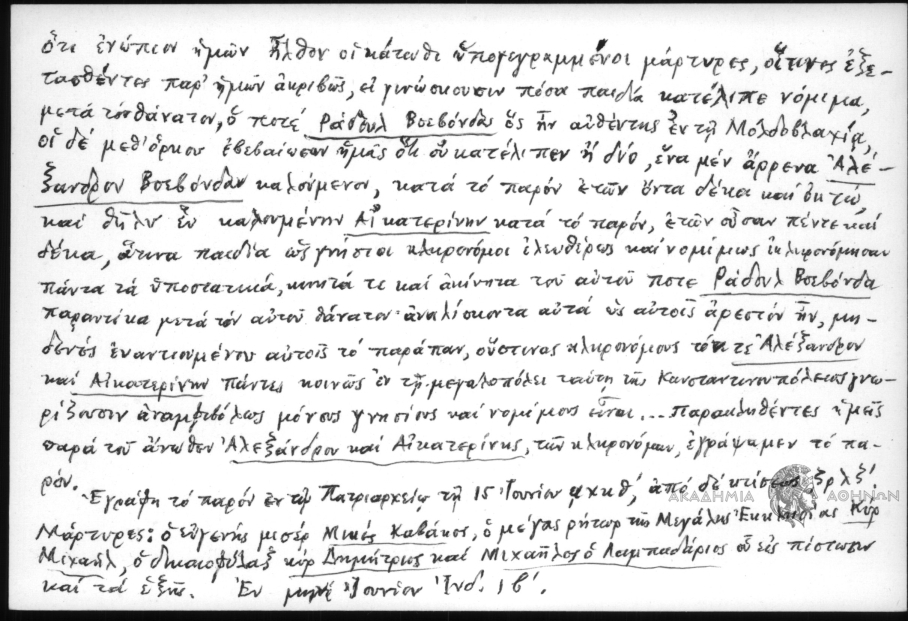 ὅτι ἐνώπιον ἡμῶν ἦλθον οἱ κάτωθι ὑπογεγραμμένοι μάρτυρες, οἵτινες ἐξε-
τασθέντες παρ' ἡμῶν ἀκριβῶς, εἰ γινώσκουσιν πόσα παιδία κατέλιπε νόμιμα,
μετά τόν θάνατον, ὅ ποτέ Ράδουλ Βοεβόνδας ὅς ἦν αὐθέντης ἐν τῇ Μολδοβλαχίᾳ,
οἱ δέ μεθ' ὅρκου ἐβεβαίωσαν ἡμᾶς ὅτι οὐ κατέλιπεν ἤ δύο, ἕνα μέν ἄρρενα Ἀλέ-
ξανδρον Βοεβόνδαν καλούμενον, κατά τό παρόν ἐτῶν ὄντα δέκα καί ὀκτώ,
καί θῆλυ ἕν καλουμένην Αἰκατερίνην κατά τό παρόν, ἐτῶν οὖσαν πέντε καί
δέκα, ἅτινα παιδία ὡς γνήσιοι κληρονόμοι ἐλευθέρως καί νομίμως ἐκληρονόμησαν
πάντα τά ὑποστατικά, κινητά τε καί ἀκίνητα τοῦ αὐτοῦ ποτε Ράδουλ Βοεβόνδα
παραυτίκα μετά τόν αὐτοῦ θάνατον ἀναλίσκοντα αὐτά ὡς αὐτοῖς ἀρεστόν ἦν, μη-
δενός ἐναντιουμένου αὐτοῖς τό παράπαν, οὕστινας κληρονόμους τόν τε Ἀλέξανδρον
καί Αἰκατερίνην πάντες κοινῶς ἐν τῇ μεγαλοπόλει ταύτῃ τῆς Κωνσταντινουπόλεως γνω-
ρίζουσιν ἀναμφιβόλως μόνους γνησίους καί νομίμους εἶναι... παρακληθέντες ἡμεῖς
παρά τοῦ ἄνωθεν Ἀλεξάνδρου καί Αἰκατερίνης, τῶν κληρονόμων, ἐγράψαμεν τό πα-
ρόν.
Ἐγράφη τό παρόν ἐν τῷ Πατριαρχείῳ τῇ 15 Ἰουνίου ͵αχκθ', ἀπό δέ κτίσεως ͵ζρλζ'.
ΑΚΑΔΗΜΙΑ ΑΘΗΝΩΝ
Μάρτυρες: ὁ εὐγενής μισέρ Μικές Καβάκος, ὁ μέγας ρήτωρ τῆς Μεγάλης Ἐκκλησίας Κύρ
Μιχαήλ, ὁ δικαιοφύλαξ κύρ Δημήτριος καί Μιχαῆλος ὁ Λαμπαδάριος οὗ εἰς πίστωσιν
καί τά ἑξῆς. Ἐν μηνί Ἰουνίου Ἰνδ. ιβ'.